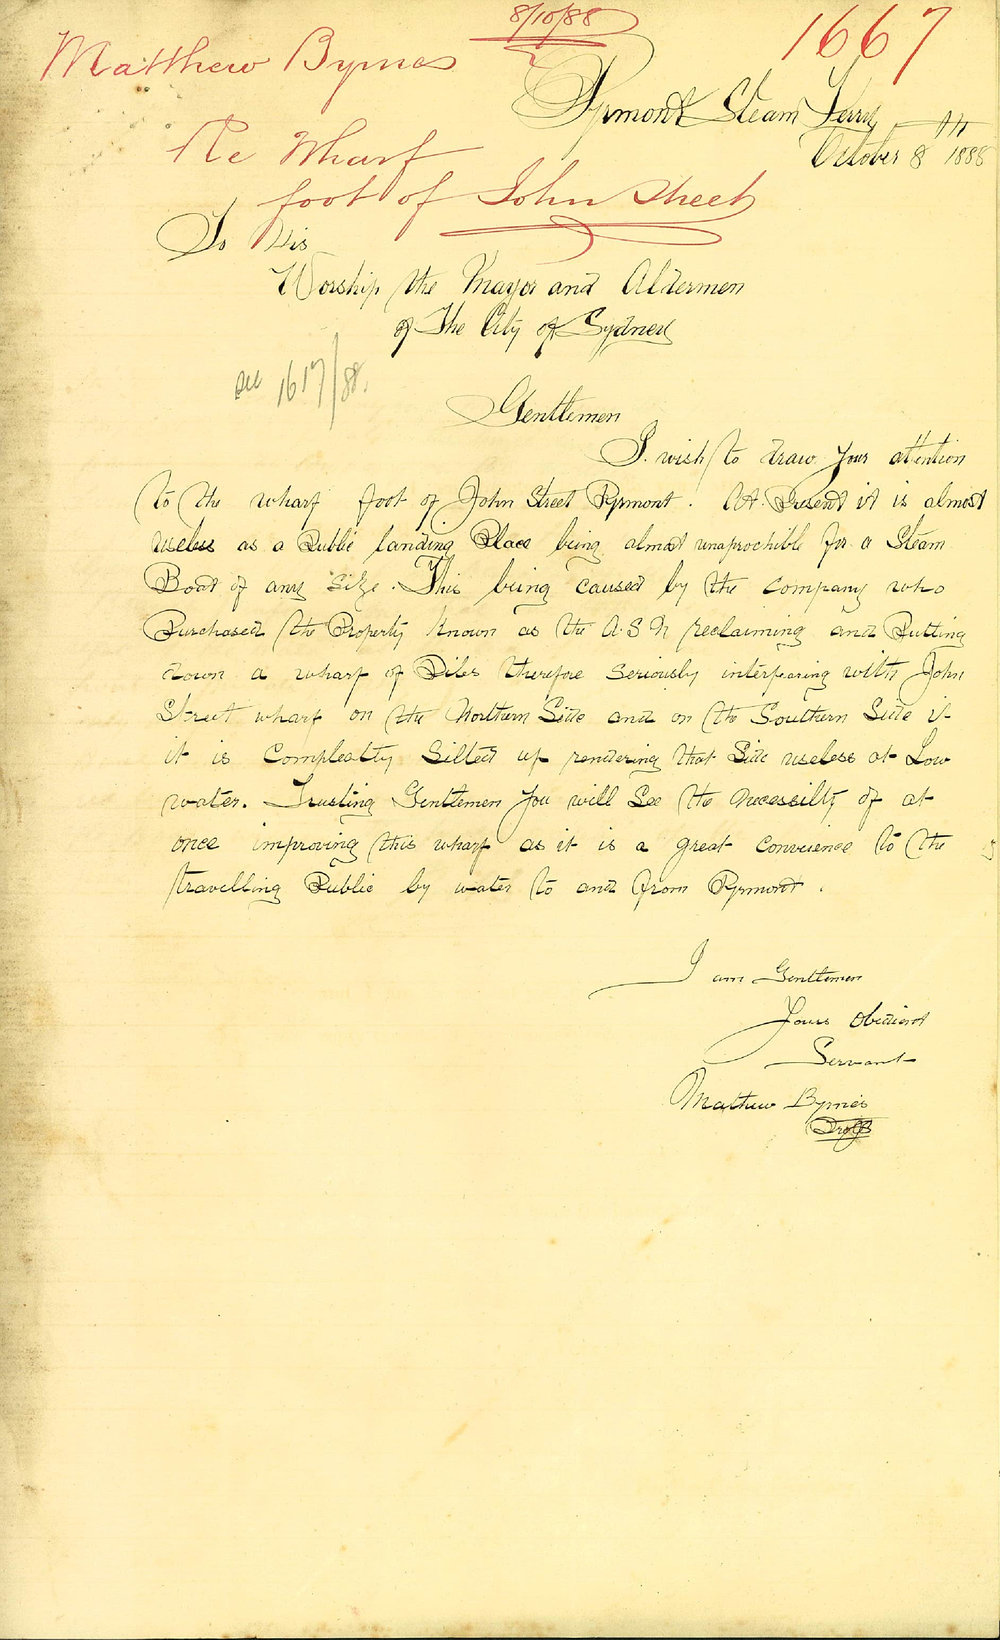 8/10/88
1667
Matthew Byrnes
Pyrmont Steam Ferry
October 8th 1888
Re Wharf
foot of John Street
To His
Worship the Mayor and Aldermen
of The City of Sydney
see 1617/88.
Gentlemen
I wish to draw your attention
to the wharf foot of John Street Pyrmont. At Present it is almost
useless as a Public landing Place being almost unaprochible for a Steam
Boat of any size. This being caused by the company who
Purchased the Property known as the A.S.N reclaiming and Putting
down a wharf of Piles therefore seriously interfearing with John
Street wharf on the Northern Side and on the Southern Side it
it is Compleatly Silted up rendering that Side useless at Low
water. Trusting Gentlemen you will See the necessilty of at
once improving this wharf as it is a great conveience to the
travelling Public by water to and from Pyrmont.
I am Gentlemen
Yours Obedient
Servant
Mathew Byrnes